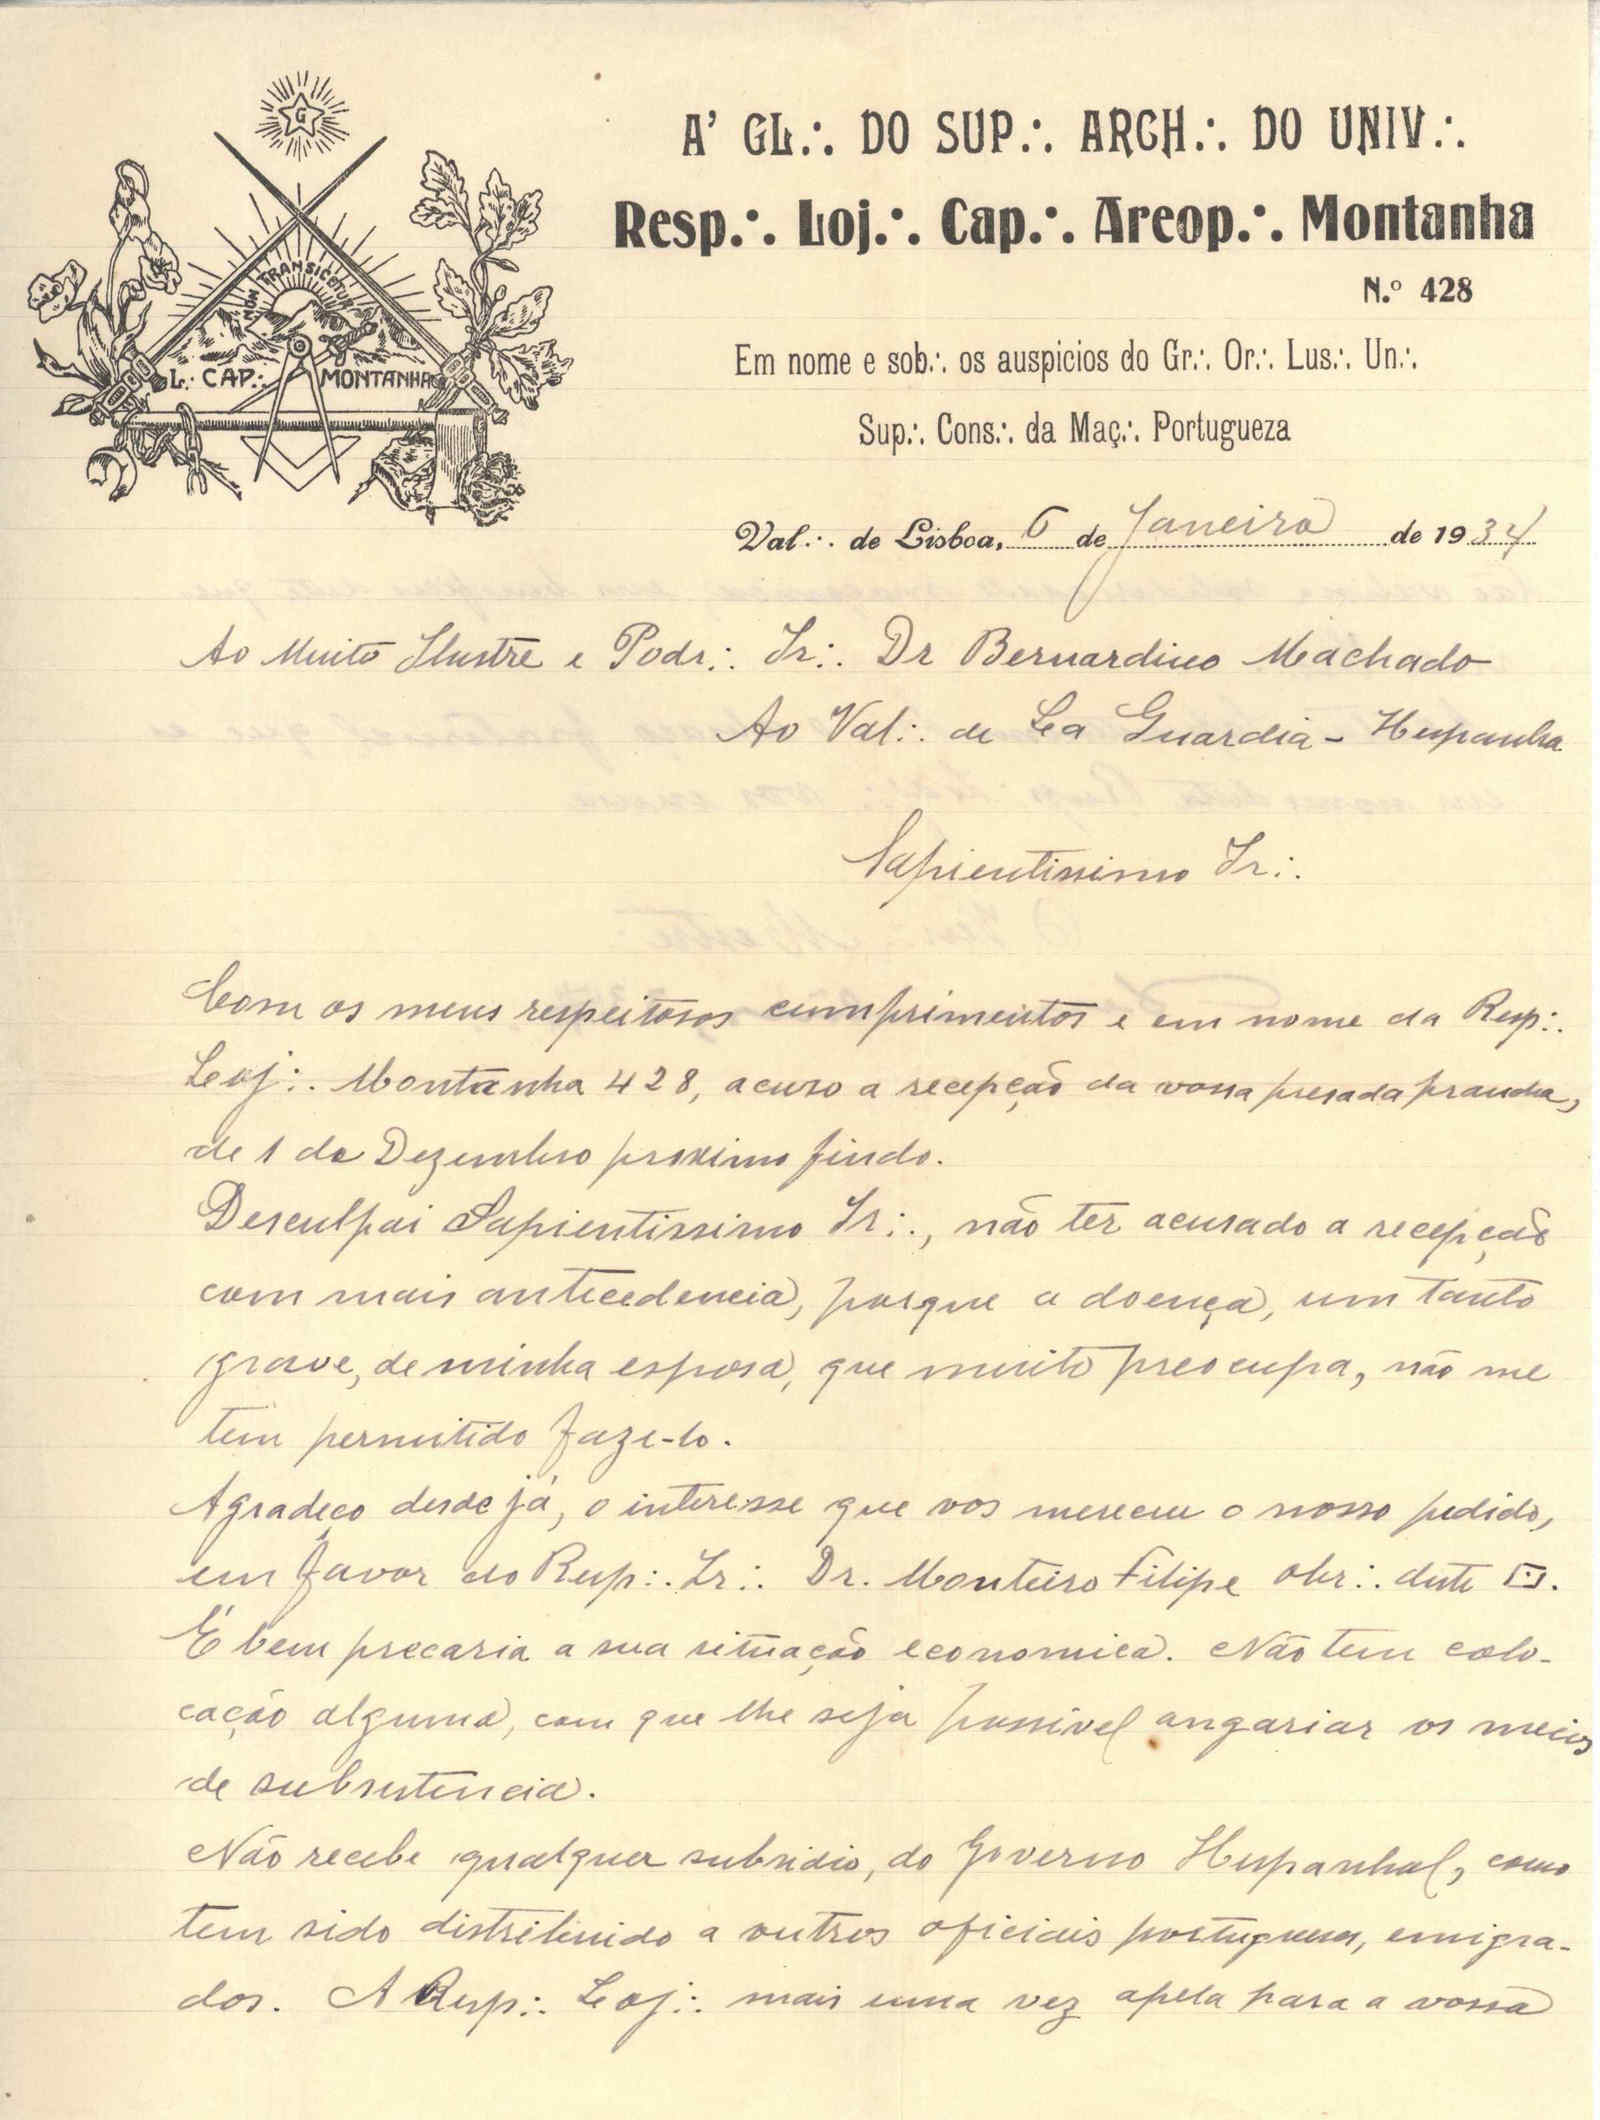 G
NON TRANSIGETUR
L.·. CAP.·. MONTANHA
A' GL.·. DO SUP.·. ARCH.·. DO UNIV.·.
Resp.·. Loj.·. Cap.·. Areop.·. Montanha
N.º 428
Em nome e sob.·. os auspicios do Gr.·. Or.·. Lus.·. Un.·.
Sup.·. Cons.·. da Maç.·. Portugueza
Val.·. de Lisboa, 6 de Janeiro de 1934
Ao Muito Ilustre e Podr.·. Ir.·. Dr Bernardino Machado
Ao Val.·. de La Guardia - Hespanha
Sapientissimo Ir.·.
Com os meus respeitosos cumprimentos e em nome da Resp.·.
Loj.·. Montanha 428, acuso a recepção da vossa presada prancha,
de 1 de Dezembro proximo findo.
Desculpai Sapientissimo Ir.·., não ter acusado a recepção
com mais antecedencia, porque a doença, um tanto
grave, de minha esposa, que muito preocupa, não me
tem permitido faze-lo.
Agradeço desde já, o interesse que vos mereceu o nosso pedido,
em favor do Resp.·. Ir.·. Dr. Monteiro Filipe obr.·. desta
É bem precaria a sua situação economica. Não tem colo-
cação alguma, com que lhe seja possivel angariar os meios
de subsistencia.
Não recebe qualquer subsidio, do Governo Hespanhol, como
tem sido distribuido a outros oficiais portugueses, emigra-
dos. A Resp.·. Loj.·. mais uma vez apela para a vossa